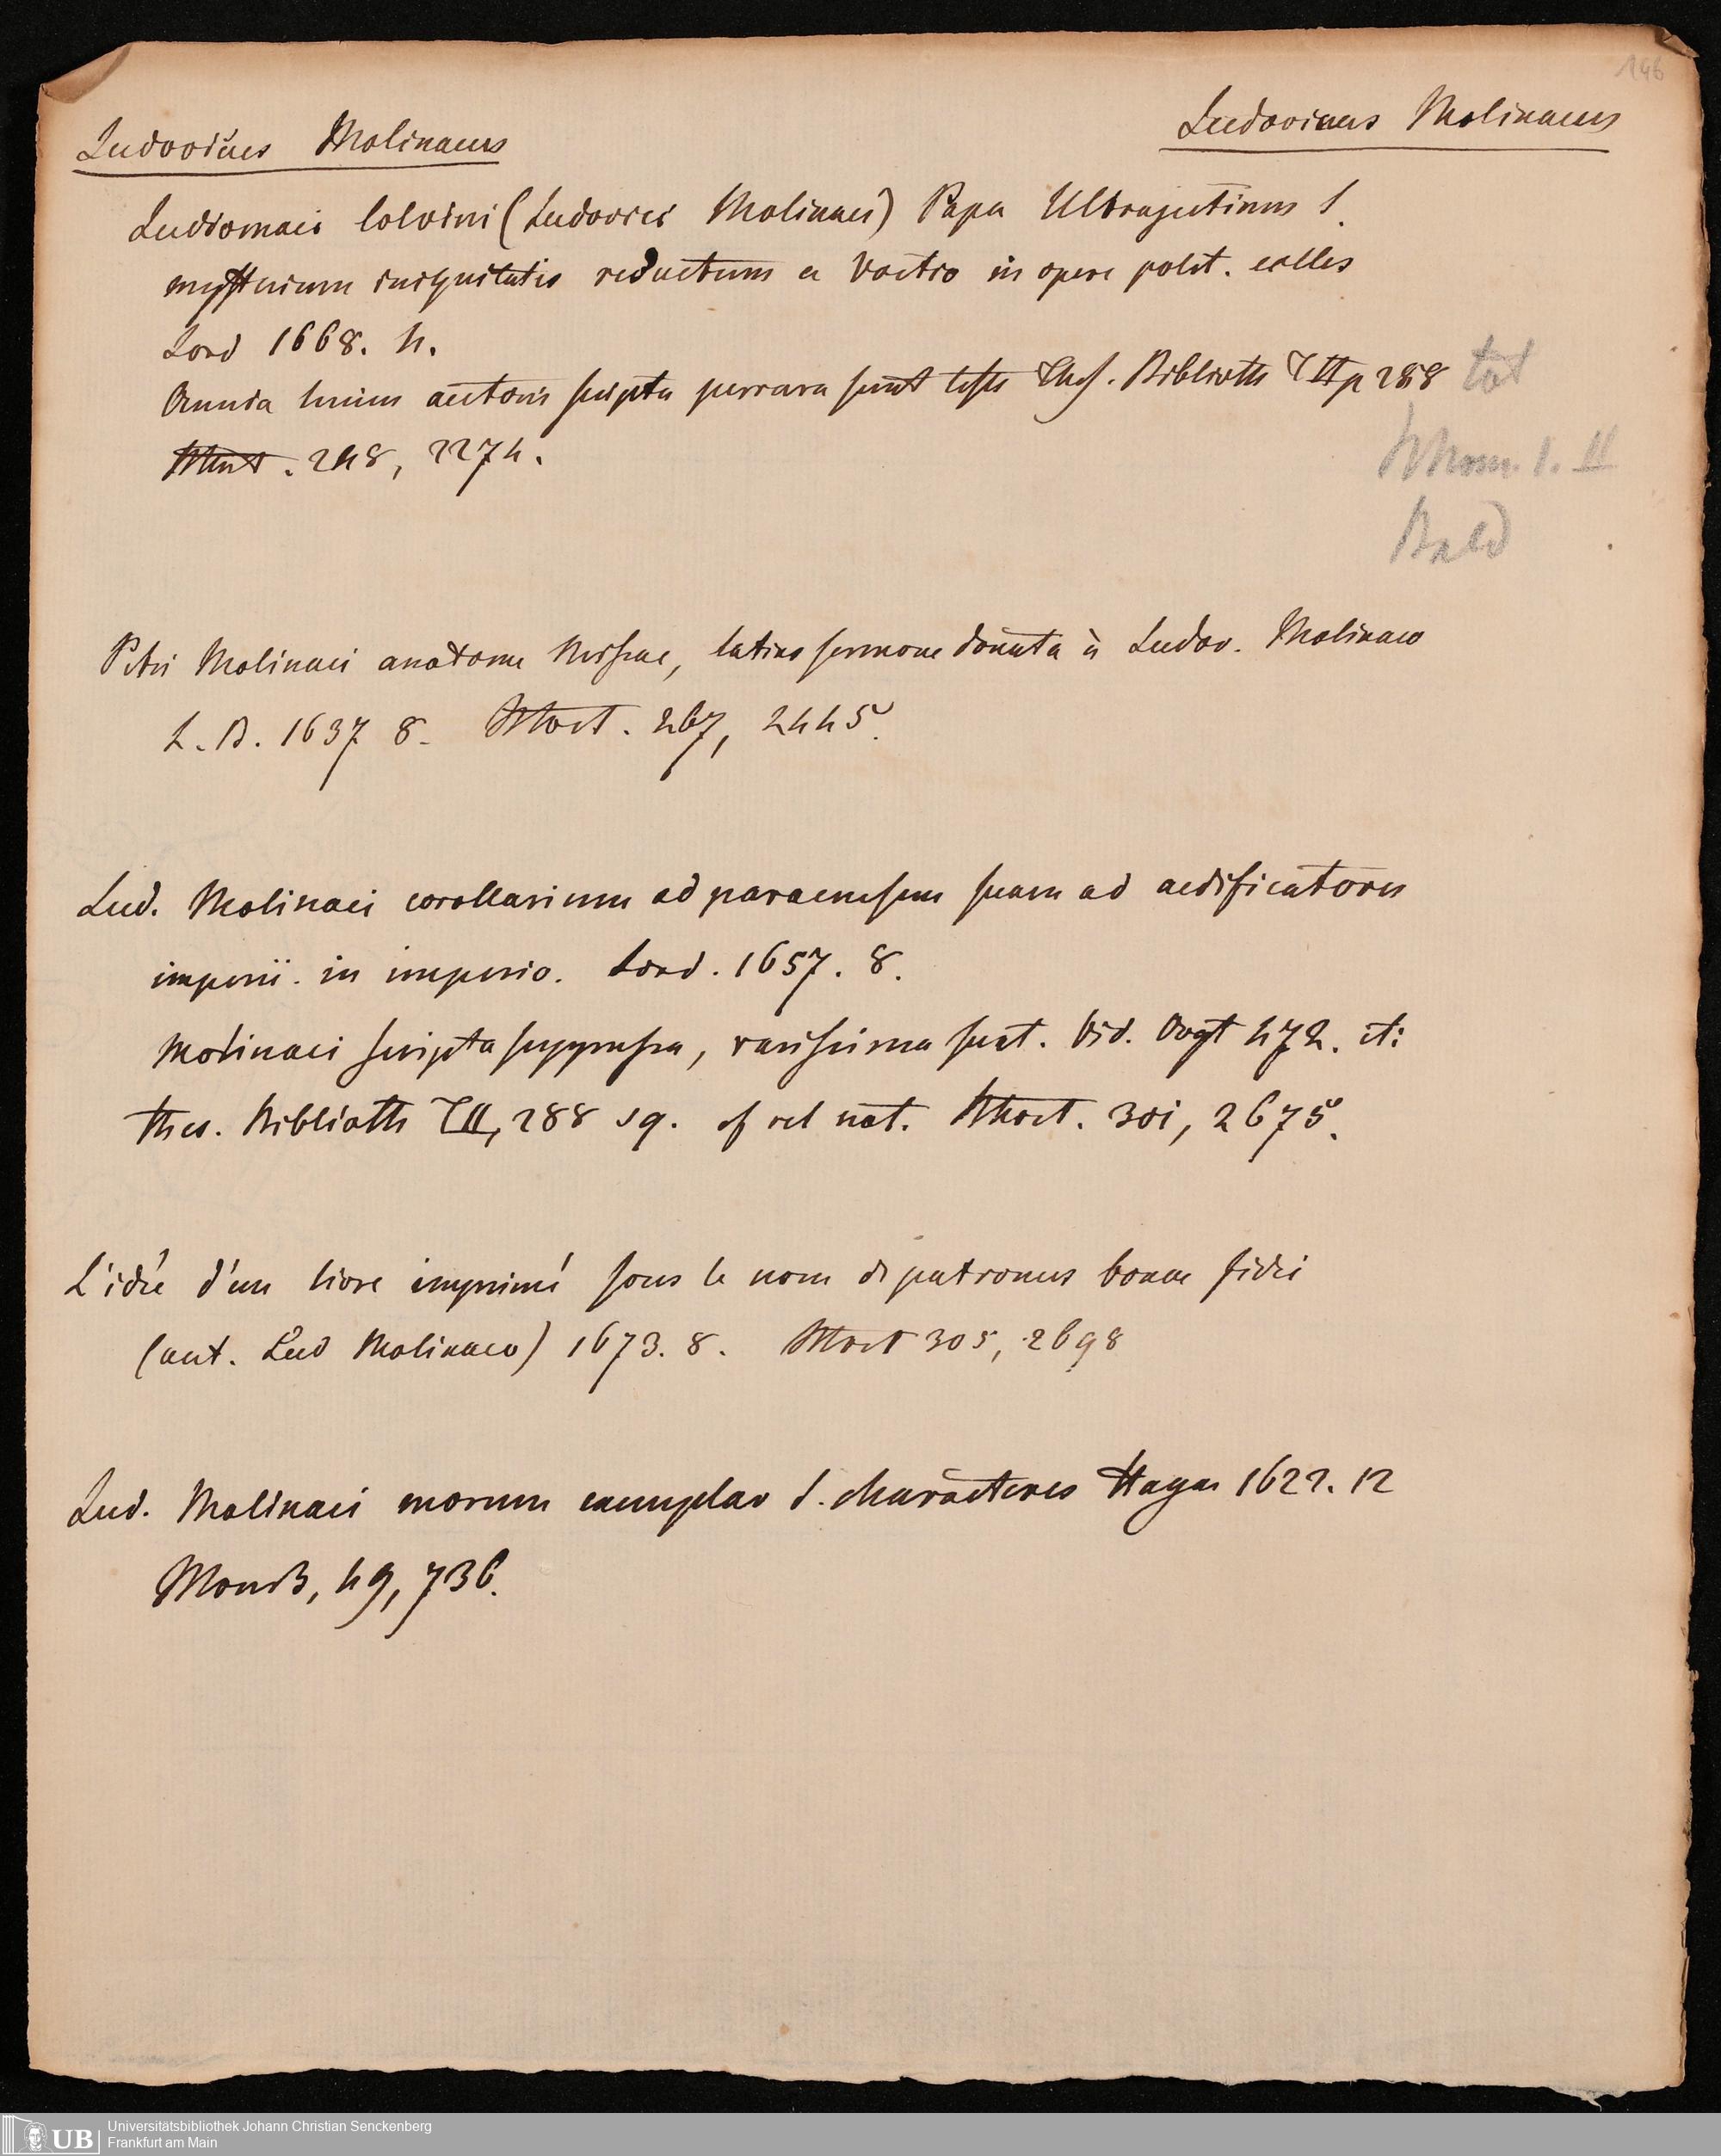 146
Ludovicus Molinaeus
Ludovicus Molinaeus
Ludiomaei Colvini (Ludovici Molinaei) Papa Ultrajectinus s.
mysterium iniquitatis reductum a Voetio in opere polit. eccles
Lond 1668. 4.
Omnia huius autoris scripta perrara sunt teste Thes. Biblioth T II p 288
248, 2274.
tot
I. II
Bald
Petri Molinaei anatome Missae, latino sermone donata à Ludov. Molinaeo
L. B. 1637 8. 267, 2445.
Lud. Molinaei corollarium ad paraenesem suam ad aedificatores
imperii in imperio. Lond. 1657. 8.
Molinaei scripta suppressa, rarissima sunt. Vid. Vogt 472. it:
thes. Biblioth T II, 288 sq. cf rel nat. 301, 2675.
L'idée d'un livre imprimé sous le nom de patronus bonae fidei
(aut. Lud Molinaeo) 1673. 8. 305, 2698
Lud. Molinaei morum exemplar s. characteres Hagae 1622. 12
49, 736.
Universitätsbibliothek Johann Christian Senckenberg
UB Frankfurt am Main